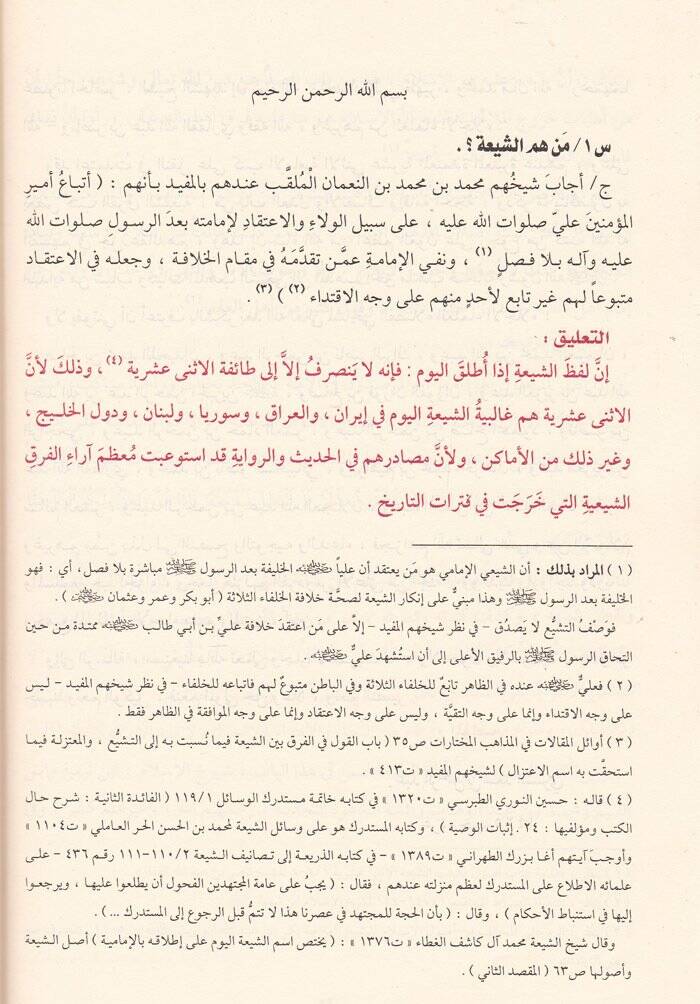 بسم الله الرحمن الرحيم
س ١/ مَن هم الشيعة ؟ .
ج/ أجابَ شيخُهم محمد بن محمد بن النعمان الْمُلقَّب عندهم بالمفيد بأنهم : ( أتباعُ أميرِ
المؤمنينَ عليّ صلوات الله عليه ، على سبيل الولاءِ والاعتقادِ لإمامته بعدَ الرسولِ صلوات الله
عليه وآله بلا فصلٍ (١) ، ونفي الإمامةِ عمَّن تقدَّمَهُ في مقام الخلافة ، وجعله في الاعتقاد
متبوعاً لهم غير تابع لأحدٍ منهم على وجه الاقتداء (٢) ) (٣) .
التعليق :
إنَّ لفظَ الشيعةِ إذا أُطلقَ اليوم : فإنه لا يَنصرفُ إلاَّ إلى طائفة الاثنى عشرية (٤) ، وذلكَ لأنَّ
الاثنى عشرية هم غالبيةُ الشيعةِ اليوم في إيران ، والعراق ، وسوريا ، ولبنان ، ودول الخليج ،
وغير ذلك من الأماكن ، ولأنَّ مصادرهم في الحديث والروايةِ قد استوعبت مُعظمَ آراءِ الفرقِ
الشيعيةِ التي خَرَجَت في فترات التاريخ .
( ١ ) المراد بذلك : أن الشيعي الإمامي هو مَن يعتقد أن علياً رضي الله عنه الخليفة بعد الرسول صلى الله عليه وسلم مباشرة بلا فصل، أي : فهو
الخليفة بعد الرسول صلى الله عليه وسلم وهذا مبنيٌّ على إنكار الشيعة لصحَّة خلافة الخلفاء الثلاثة ( أبو بكر وعمر وعثمان رضي الله عنهم ) .
فوَصْفُ التشيُّع لا يَصدُق – في نظر شيخهم المفيد – إلاَّ على مَن اعتقدَ خلافة عليِّ بن أبي طالب رضي الله عنه ممتدة من حين
التحاق الرسول صلى الله عليه وسلم بالرفيق الأعلى إلى أن استُشهدَ عليٌّ رضي الله عنه .
( ٢ ) فعليٌّ رضي الله عنه عنده في الظاهر تابعٌ للخلفاء الثلاثة وفي الباطن متبوعٌ لهم فاتباعه للخلفاء – في نظر شيخهم المفيد – ليس
على وجه الاقتداء وإنما على وجه التقيَّة ، وليس على وجه الاعتقاد وإنما على وجه الموافقة في الظاهر فقط .
( ٣ ) أوائل المقالات في المذاهب المختارات ص٣٥ ( باب القول في الفرق بين الشيعة فيما نُسبت به إلى التشيُّع ، والمعتزلة فيما
استحقَّت به اسم الاعتزال ) لشيخهم المفيد « ت٤١٣ » .
( ٤ ) قاله : حسين النوري الطبرسي « ت١٣٢٠ » في كتابه خاتمة مستدرك الوسائل ١١٩/١ ( الفائدة الثانية : شرح حال
الكتب ومؤلفيها : ٢٤ . إثبات الوصية ) ، وكتابه المستدرك هو على وسائل الشيعة لمحمد بن الحسن الحر العاملي « ت١١٠٤ »
وأوجبَ آيتهم أغا بزرك الطهراني « ت١٣٨٩ » – في كتابه الذريعة إلى تصانيف الشيعة ١١٠/٢-١١١ رقم ٤٣٦ – على
علمائه الاطلاع على المستدرك لعظم منزلته عندهم ، فقال : ( يجبُ على عامة المجتهدين الفحول أن يطلعوا عليها ، ويرجعوا
إليها في استنباط الأحكام ) ، وقال : ( بأن الحجة للمجتهد في عصرنا هذا لا تتمُّ قبل الرجوع إلى المستدرك ... ) .
وقال شيخ الشيعة محمد آل كاشف الغطاء « ت١٣٧٦ » : ( يختص اسم الشيعة اليوم على إطلاقه بالإمامية ) أصل الشيعة
وأصولها ص٦٣ ( المقصد الثاني ) .